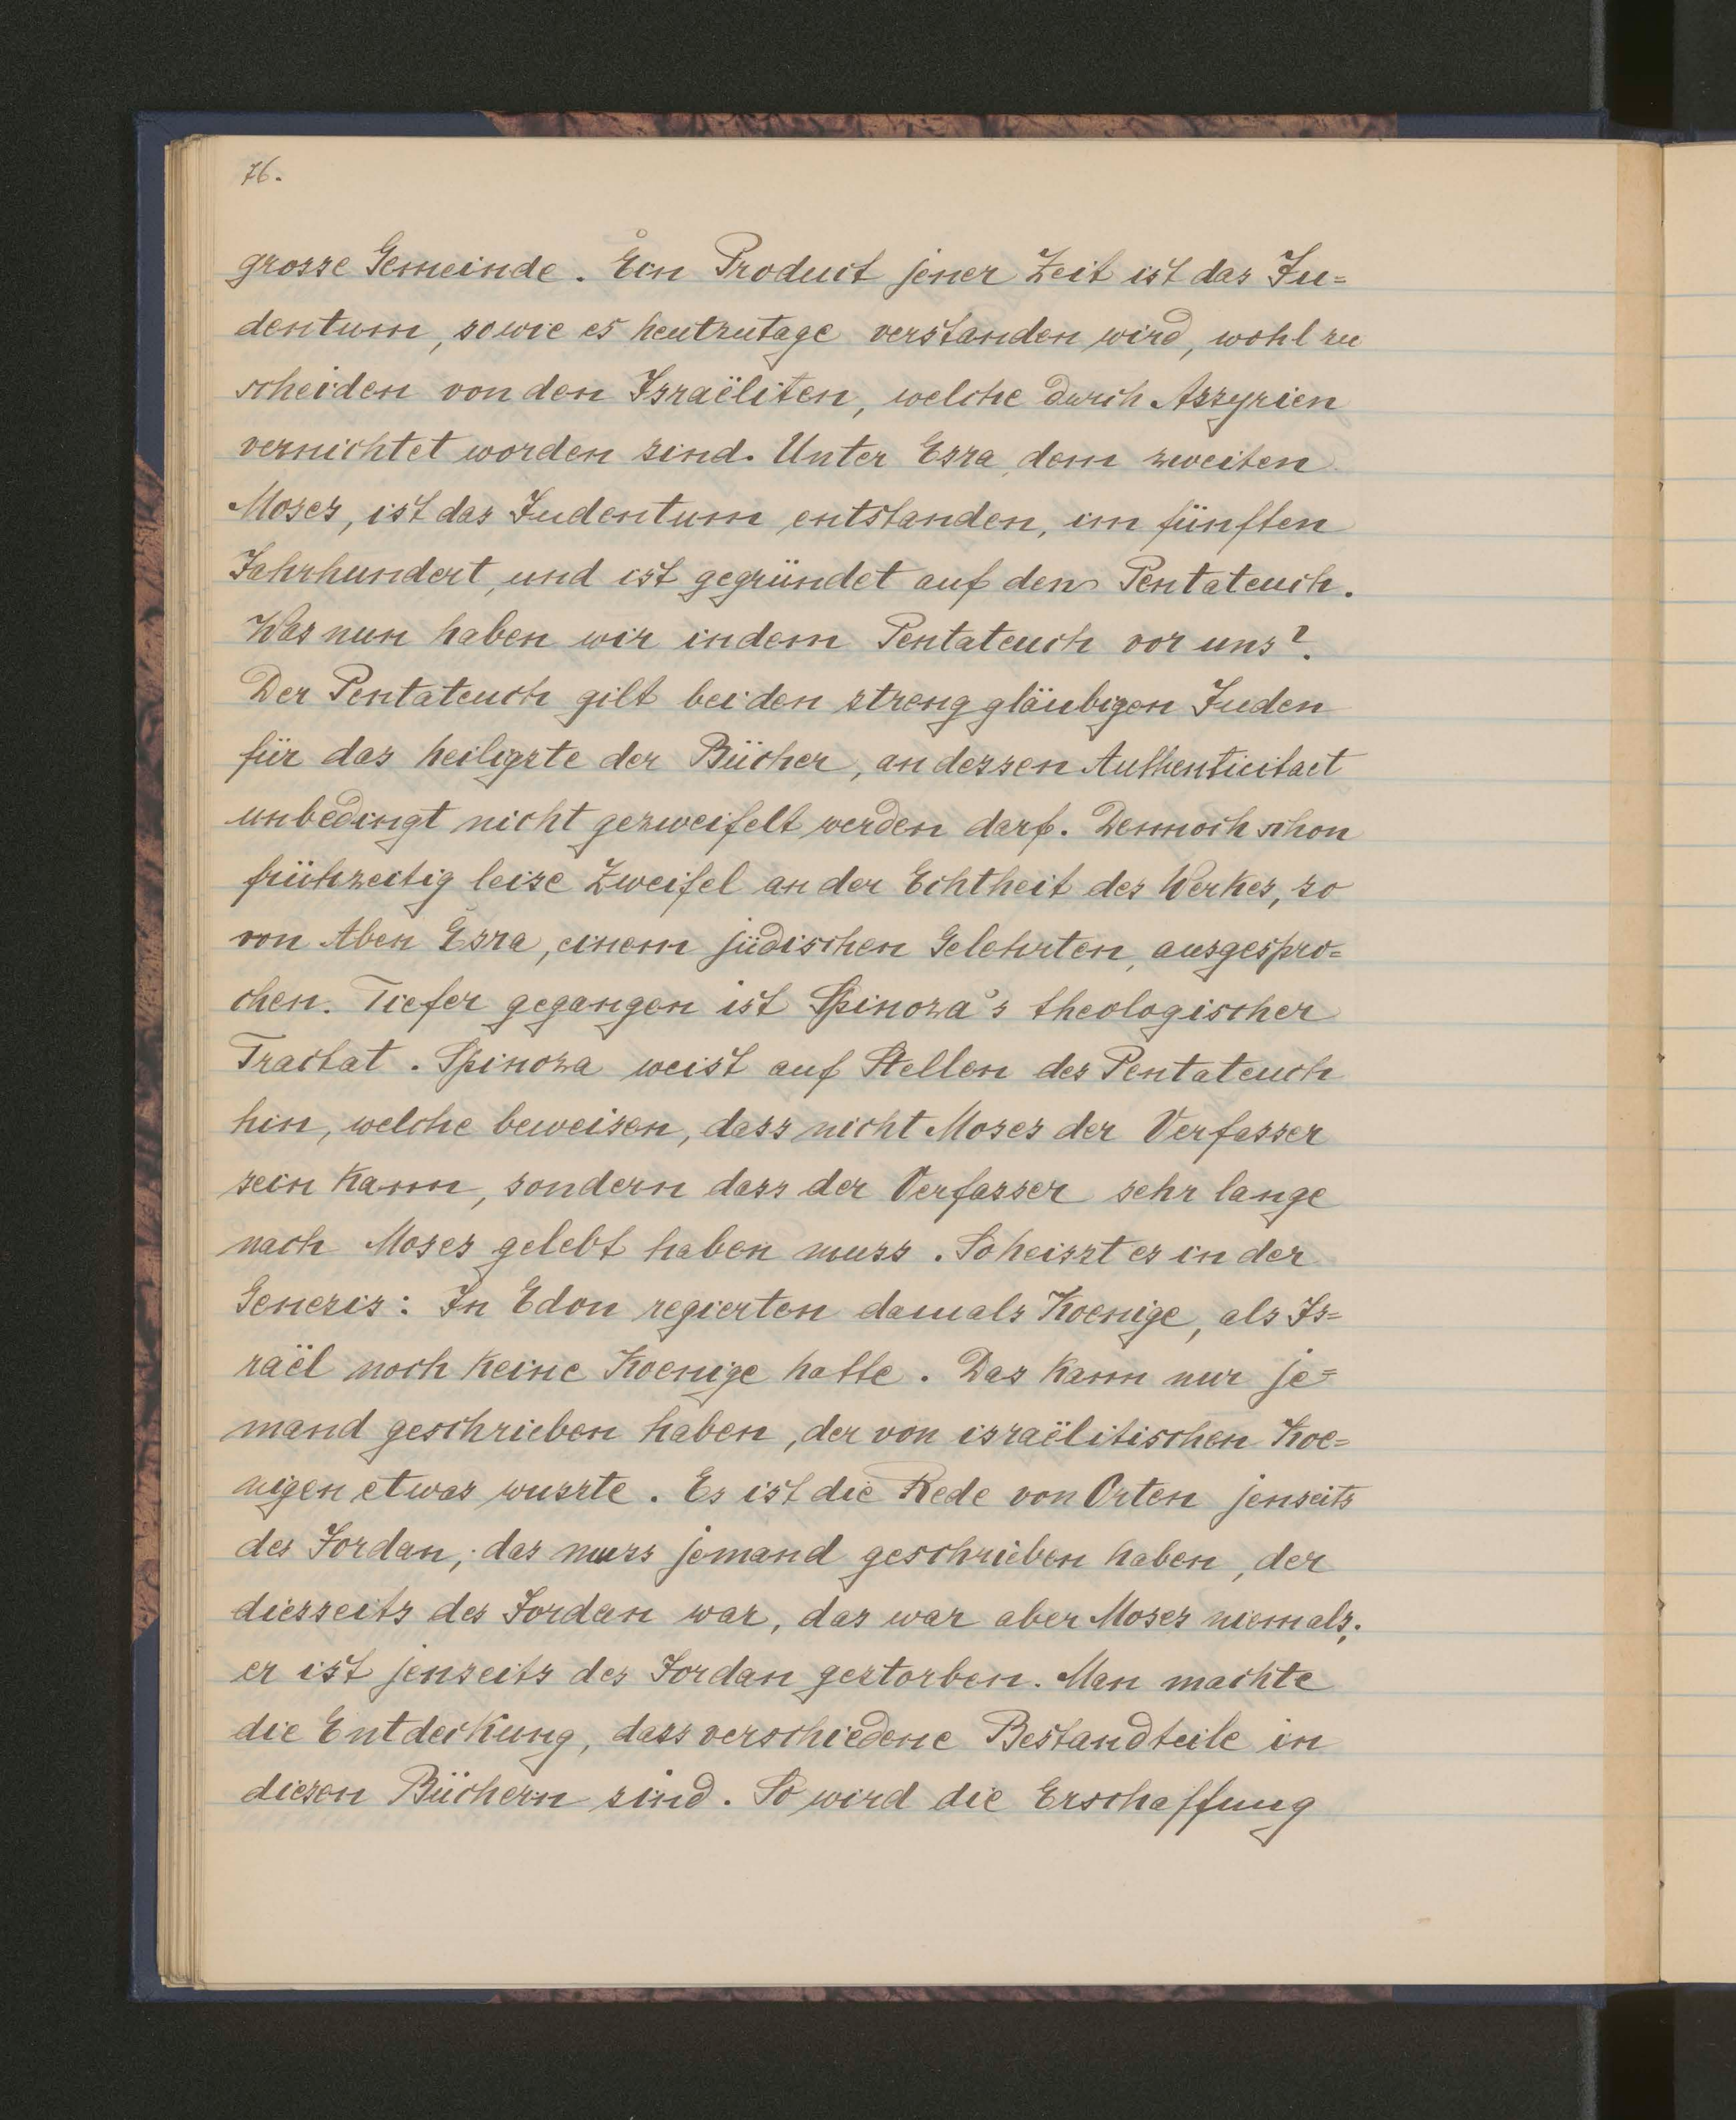 76.
grosse Gemeinde. Ein Product jener Zeit ist das Ju=
dentum, sowie es heutzutage verstanden wird, wohl zu
scheiden von den Israëliten, welche durch Assyrien
vernichtet worden sind. Unter Esra, dem zweiten
Moses, ist das Judentum entstanden, im fünften
Jahrhundert, und ist gegründet auf den Pentateuch.
Was nun haben wir in dem Pentateuch vor uns?
Der Pentateuch gilt bei den streng gläubigen Juden
für das heiligste der Bücher, an dessen Authenticitaet
unbedingt nicht gezweifelt werden darf. Dennoch schon
frühzeitig leise Zweifel an der Echtheit des Werkes, so
von Aben Esra, einem jüdischen Gelehrten, ausgespro=
chen. Tiefer gegangen ist Spinoza's theologischer
Tractat. Spinoza weist auf Stellen des Pentateuch
hin, welche beweisen, dass nicht Moses der Verfasser
sein kann, sondern dass der Verfasser sehr lange
nach Moses gelebt haben muss. So heisst es in der
Genesis: In Edon regierten damals Koenige, als Is=
raël noch keine Koenige hatte. Das kann nur je=
mand geschrieben haben, der von israëlitischen Koe=
nigen etwas wusste. Es ist die Rede von Orten jenseits
des Jordan; das muss jemand geschrieben haben, der
diesseits des Jordan war, das war aber Moses niemals;
er ist jenseits des Jordan gestorben. Man machte
die Entdeckung, dass verschiedene Bestandteile in
diesen Büchern sind. So wird die Erschaffung